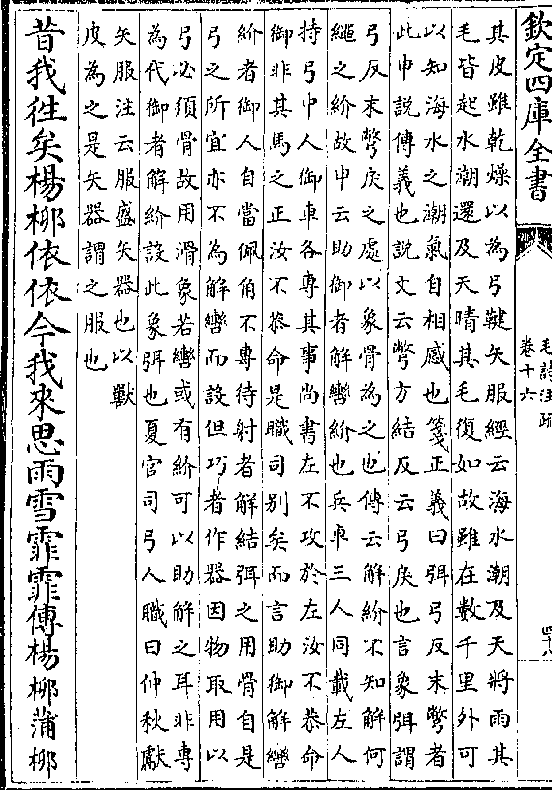 欽定四庫全書
毛詩注疏
卷十六
其皮雖乾燥以為弓鞬矢服經云海水潮及天將雨其
毛皆起水潮還及天晴其毛復如故雖在數千里外可
以知海水之潮氣自相感也箋正義曰弭弓反末彆者
此申說傳義也說文云彆方結反云弓戾也言象弭謂
弓反末彆戾之處以象骨為之也傳云解紛不知解何
繩之紛故申云助御者解轡紛也兵車三人同載左人
持弓中人御車各專其事尚書左不攻於左汝不恭命
御非其馬之正汝不恭命是職司別矣而言助御解轡
紛者御人自當佩觿不專待射者解結弭之用骨自是
弓之所宜亦不為解轡而設但巧者作器因物取用以
弓必須骨故用滑象若轡或有紛可以助解之耳非專
為代御者解紛設此象弭也夏官司弓人職曰仲秋獻
矢服注云服盛矢器也以獸
皮為之是矢器謂之服也
昔我往矣楊柳依依今我來思雨雪霏霏傳楊柳蒲柳